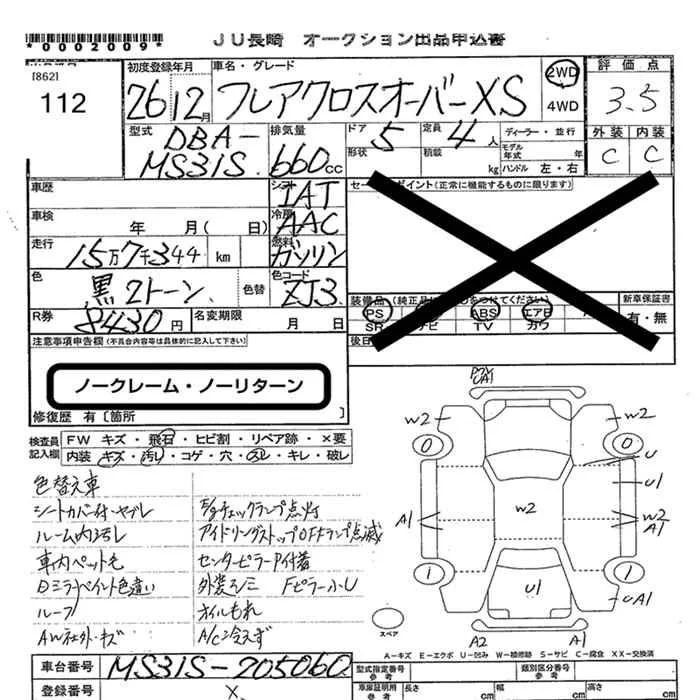 *0002009* JU長崎 オークション出品申込書
[862]
112
初度登録年月 車名・グレード 評価点
26 12月 フレアクロスオーバーXS 2WD 4WD 3.5
型式 DBA-MS31S 排気量 660cc
ドア 5 定員 4人 形状 積載 kg
ディーラー・並行 モデル年式 年 ハンドル 左・右
外装 内装
C C
車歴 シフト IAT
車検 年 月( 日) 冷房 AAC
走行 15万7千344 km 燃料 ガソリン
色 黒2トーン 色替 色コード ZJ3
R券 8430円 名変期限 月 日
ポイント(正常に機能するものに限ります)
装備品 新車保証書
PS ABS エアB 有・無
SR ナビ TV カワ
注意事項申告欄(不具合内容等は具体的に記入して下さい)
ノークレーム・ノーリターン
修復歴 有〔箇所 〕
検査員記入欄 FW キズ・飛石・ヒビ割・リペア跡・×要
内装 キズ・汚れ・コゲ・穴・スレ・キレ・破レ
色替え車
シートカバー付・ヤブレ
ルーム内汚レ
車内ペット毛
Dミラーペイント色違い
ルーフ
AW社外・キズ
E/gチェックランプ点灯
アイドリングストップOFFランプ点滅
センターピラーP付着
外装
オイルもれ
A/C冷えず
UA1
W2 W2
0 0
U
U1
A1 W2 W2
A1
1 1
U1 UA1
スペア
A2 A1
A-キズ E-エクボ U-凹み W-補修跡 S-サビ C-腐食 XX-交換済
車台番号 MS31S-205060
登録番号 X
型式指定番号 参考 類別区分番号 参考
車庫証明用 参考 長さ cm 幅 cm 高さ cm